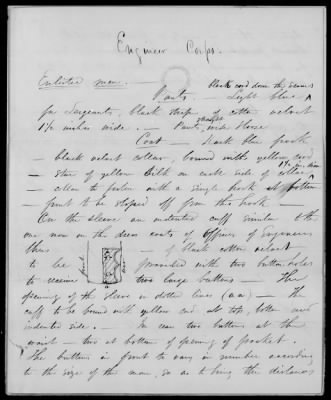 Engineer Corps.
Enlisted men. —
black cord down the seams
Pants. — Light blue
for Sergeants, black stripe of cotton velvet
1½ inches wide. — Pants, straight
Coat — Dark blue frock
— black velvet collar, bound with yellow cord
— star of yellow silk on each side of collar
— collar to fasten with a single hook at bottom
front to be sloped off from this hook —
On the sleeve an indented cuff similar to the
one now on the dress coats of Officers of Engineers
thus — of black cotton velvet
to be provided with two button holes
to receive two large buttons — The
opening of the sleeve in dotted lines (aa) — The
cuff to be bound with yellow cord at top, bottom and
indented side. — In rear two buttons at the
waist — two at bottom of opening of pocket.
The buttons in front to vary in number according
to the size of the man, so as to bring the distances